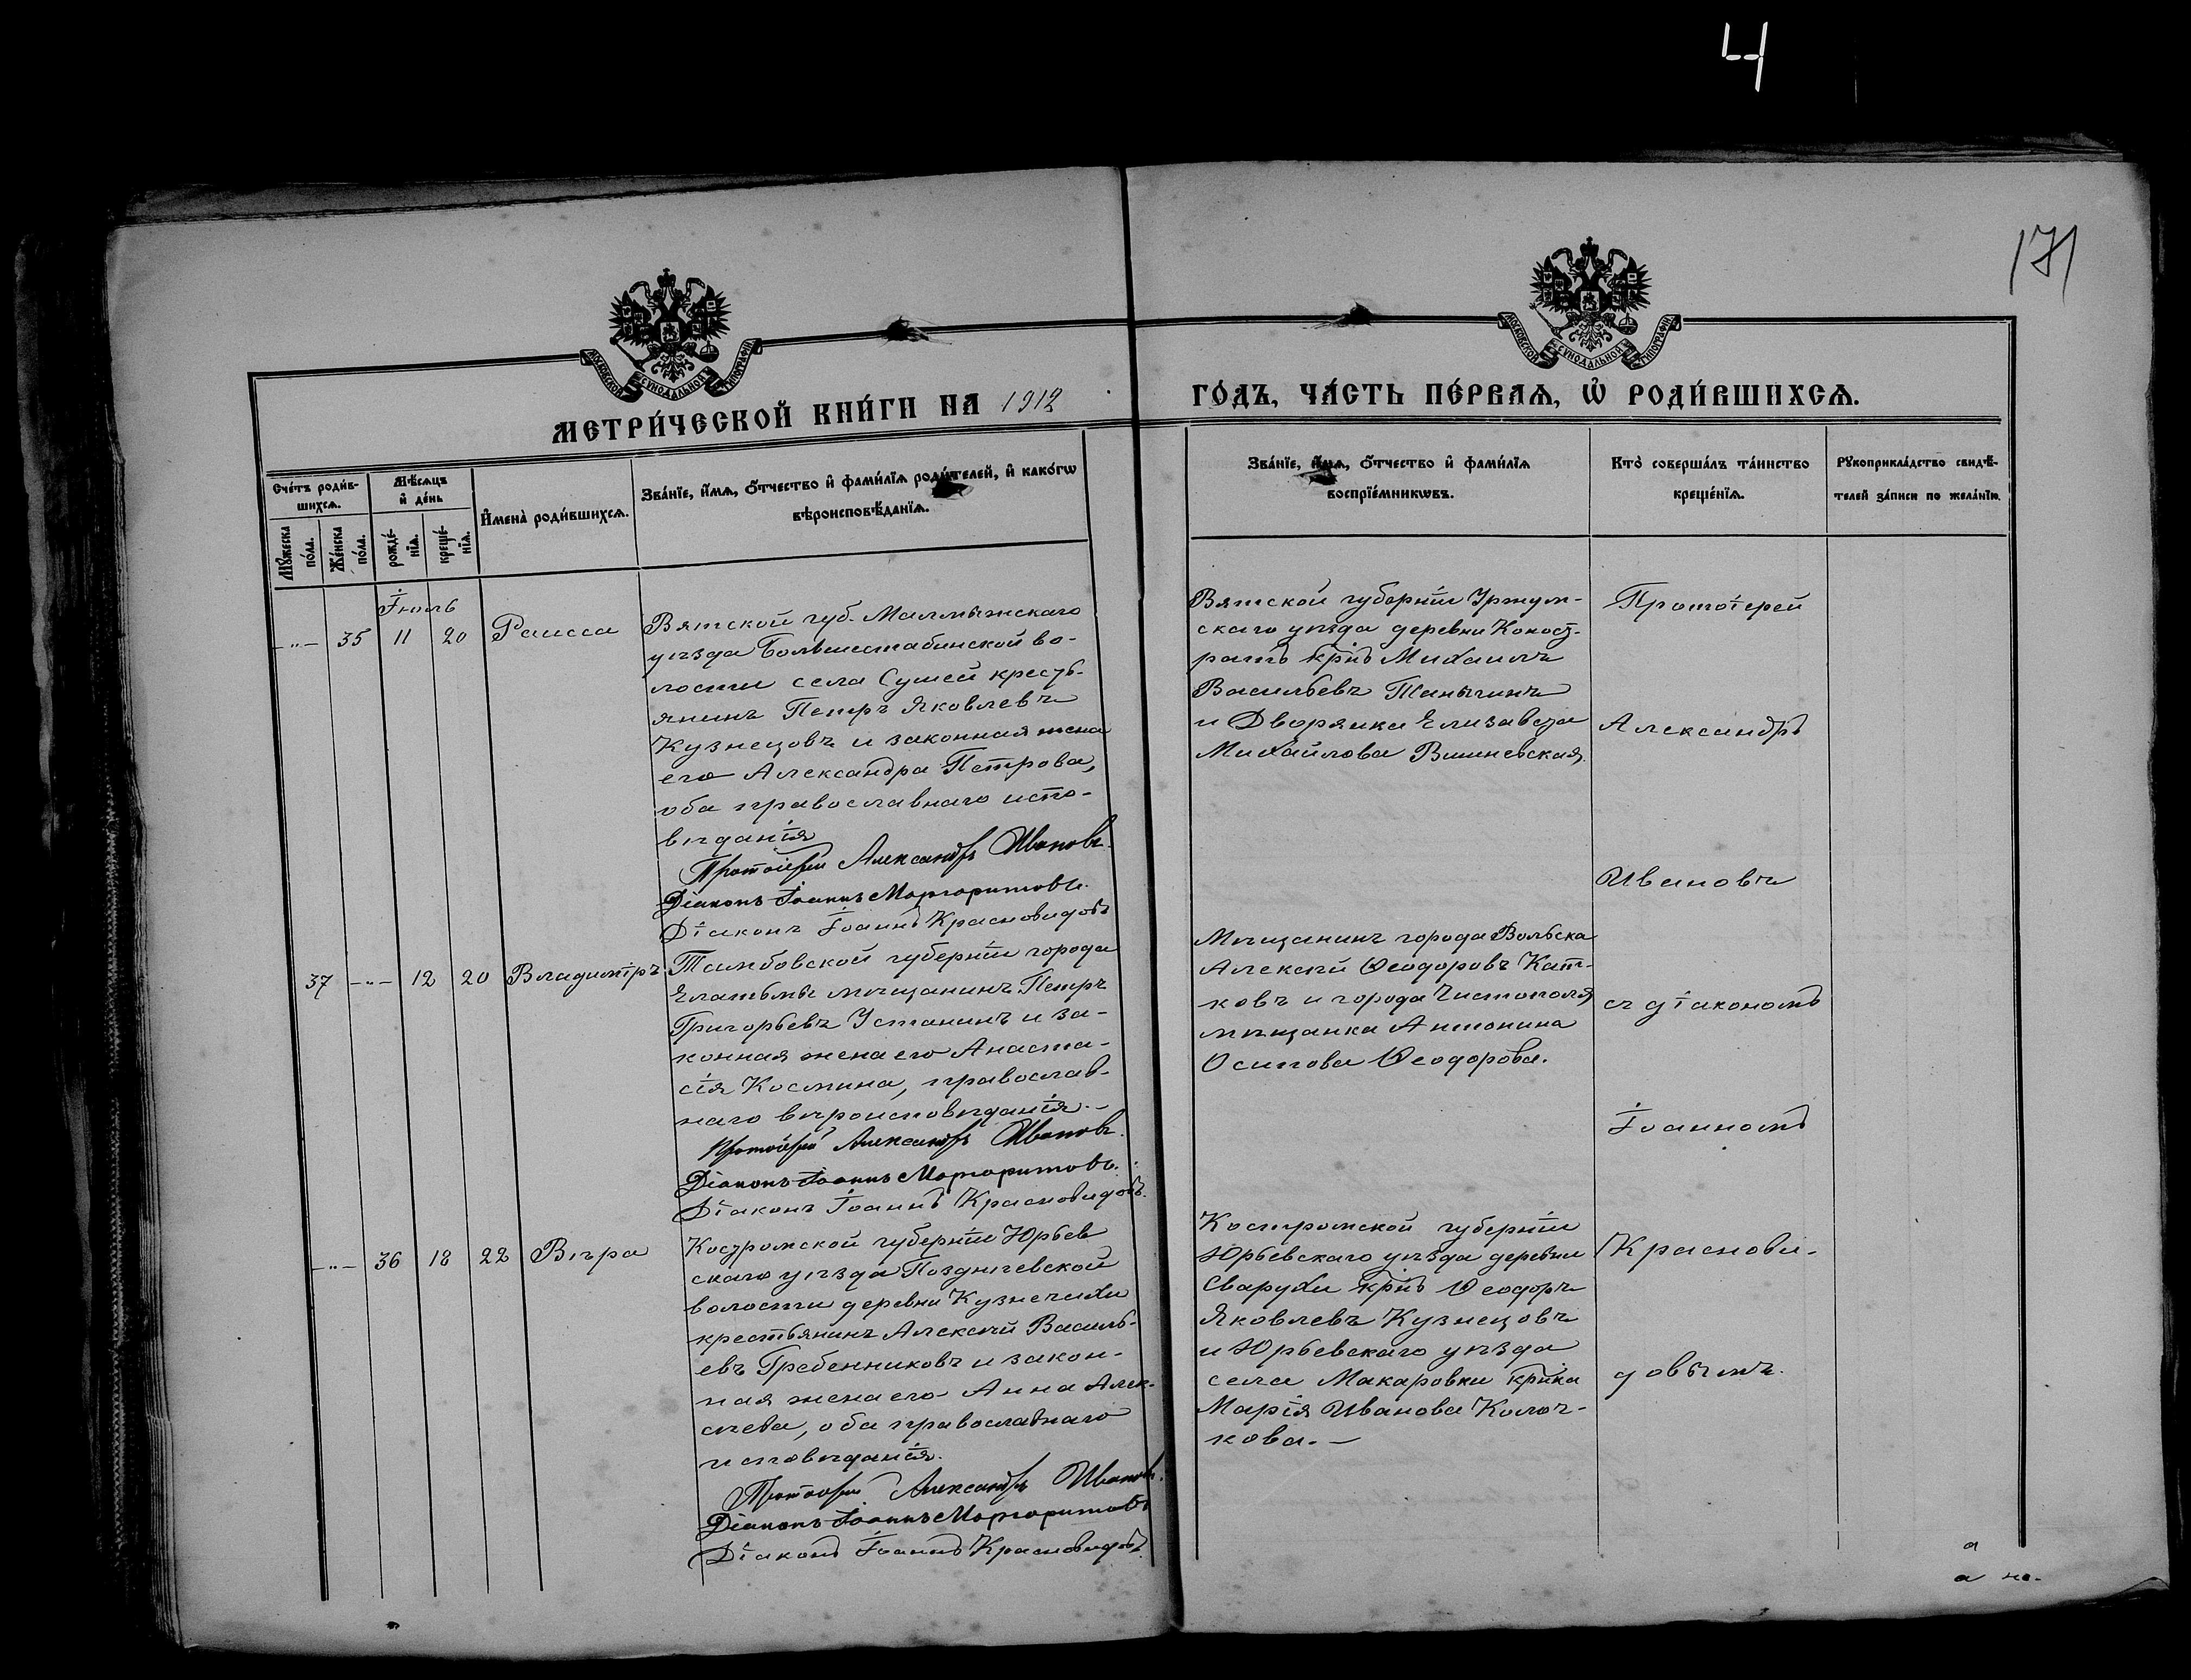 4
171
МОСКОВСКОЙ СѴНОДАЛЬНОЙ ТИПОГРАФІИ
МОСКОВСКОЙ СѴНОДАЛЬНОЙ ТИПОГРАФІИ
МЕТРИ́ЧЕСКОЙ КНИ́ГИ НА 1912
ГО́ДЪ, ЧА́СТЬ ПЕ́РВАѦ, Ѡ҆ РОДИ́ВШИХСѦ.
Сче́тъ роди́в-
шихсѧ.
Мѣ́сѧцъ
и҆ де́нь
И҆мена̀ роди́вшихсѧ.
Зва́нїе, и҆́мѧ, ѻ҆́тчество и҆ фами́лїѧ роди́телей, и҆ како́гѡ
вѣроисповѣ́данїѧ.
Мꙋ́жеска
по́ла.
Же́нска
по́ла.
рожде́-
нїѧ.
креще́-
нїѧ.
Зва́нїе, и҆́мѧ, ѻ҆́тчество и҆ фами́лїѧ
воспрїе́мникѡвъ.
Кто̀ соверша́лъ та́инство
креще́нїѧ.
Рꙋкоприкла́дство свидѣ́-
телей за́писи по жела́нїю.
Іюль
-"- 35 11 20 Раисса
Вятской губ. Малмыжскаго
уѣзда Большешабинской во-
лости села Сушей кресть-
янинъ Петръ Яковлевъ
Кузнецовъ и законная жена
его Александра Петрова,
оба православнаго испо-
вѣданія
Протоіерей Александръ Ивановъ.
Діаконъ Іоаннъ Маргаритовъ.
Діаконъ Іоаннъ Красновидовъ
Вятской губерніи Уржум-
скаго уѣзда деревни
крнъ Михаилъ
Васильевъ Танычинъ
и Дворянка Елизавета
Михайлова Вишневская.
Протоіерей
Александръ
Ивановъ
37 -"- 12 20 Владиміръ
Тамбовской губерніи города
Елатьмы мѣщанинъ Петръ
Григорьевъ Устанинъ и за-
конная жена его Анаста-
сія Космина, православ-
наго вѣроисповѣданія.-
Протоіерей Александръ Ивановъ.
Діаконъ Іоаннъ Маргаритовъ.
Діаконъ Іоаннъ Красновидовъ.
Мѣщанинъ города Вольска
Алексѣй Ѳеодоровъ Кат-
ковъ и города Чистополя
мѣщанка Антонина
Осипова Ѳеодорова.
съ діакономъ
Іоанномъ
-"- 36 18 22 Вѣра
Костромской губерніи Юрьев
скаго уѣзда Поздничевской
волости деревни Кузнечихи
крестьянинъ Алексѣй Василь-
евъ Гребенниковъ и закон-
ная жена его Анна Алек-
сѣева, оба православнаго
исповѣданія.
Протоіерей Александръ Ивановъ.
Діаконъ Іоаннъ Маргаритовъ
Діаконъ Іоаннъ Красновидовъ.
Костромской губерніи
Юрьевскаго уѣзда деревни
Сварухи крнъ Ѳеодоръ
Яковлевъ Кузнецовъ
и Юрьевскаго уѣзда
села Макаровки крнка
Марія Иванова Колоч-
кова.-
Краснови-
довымъ.
а
а но.